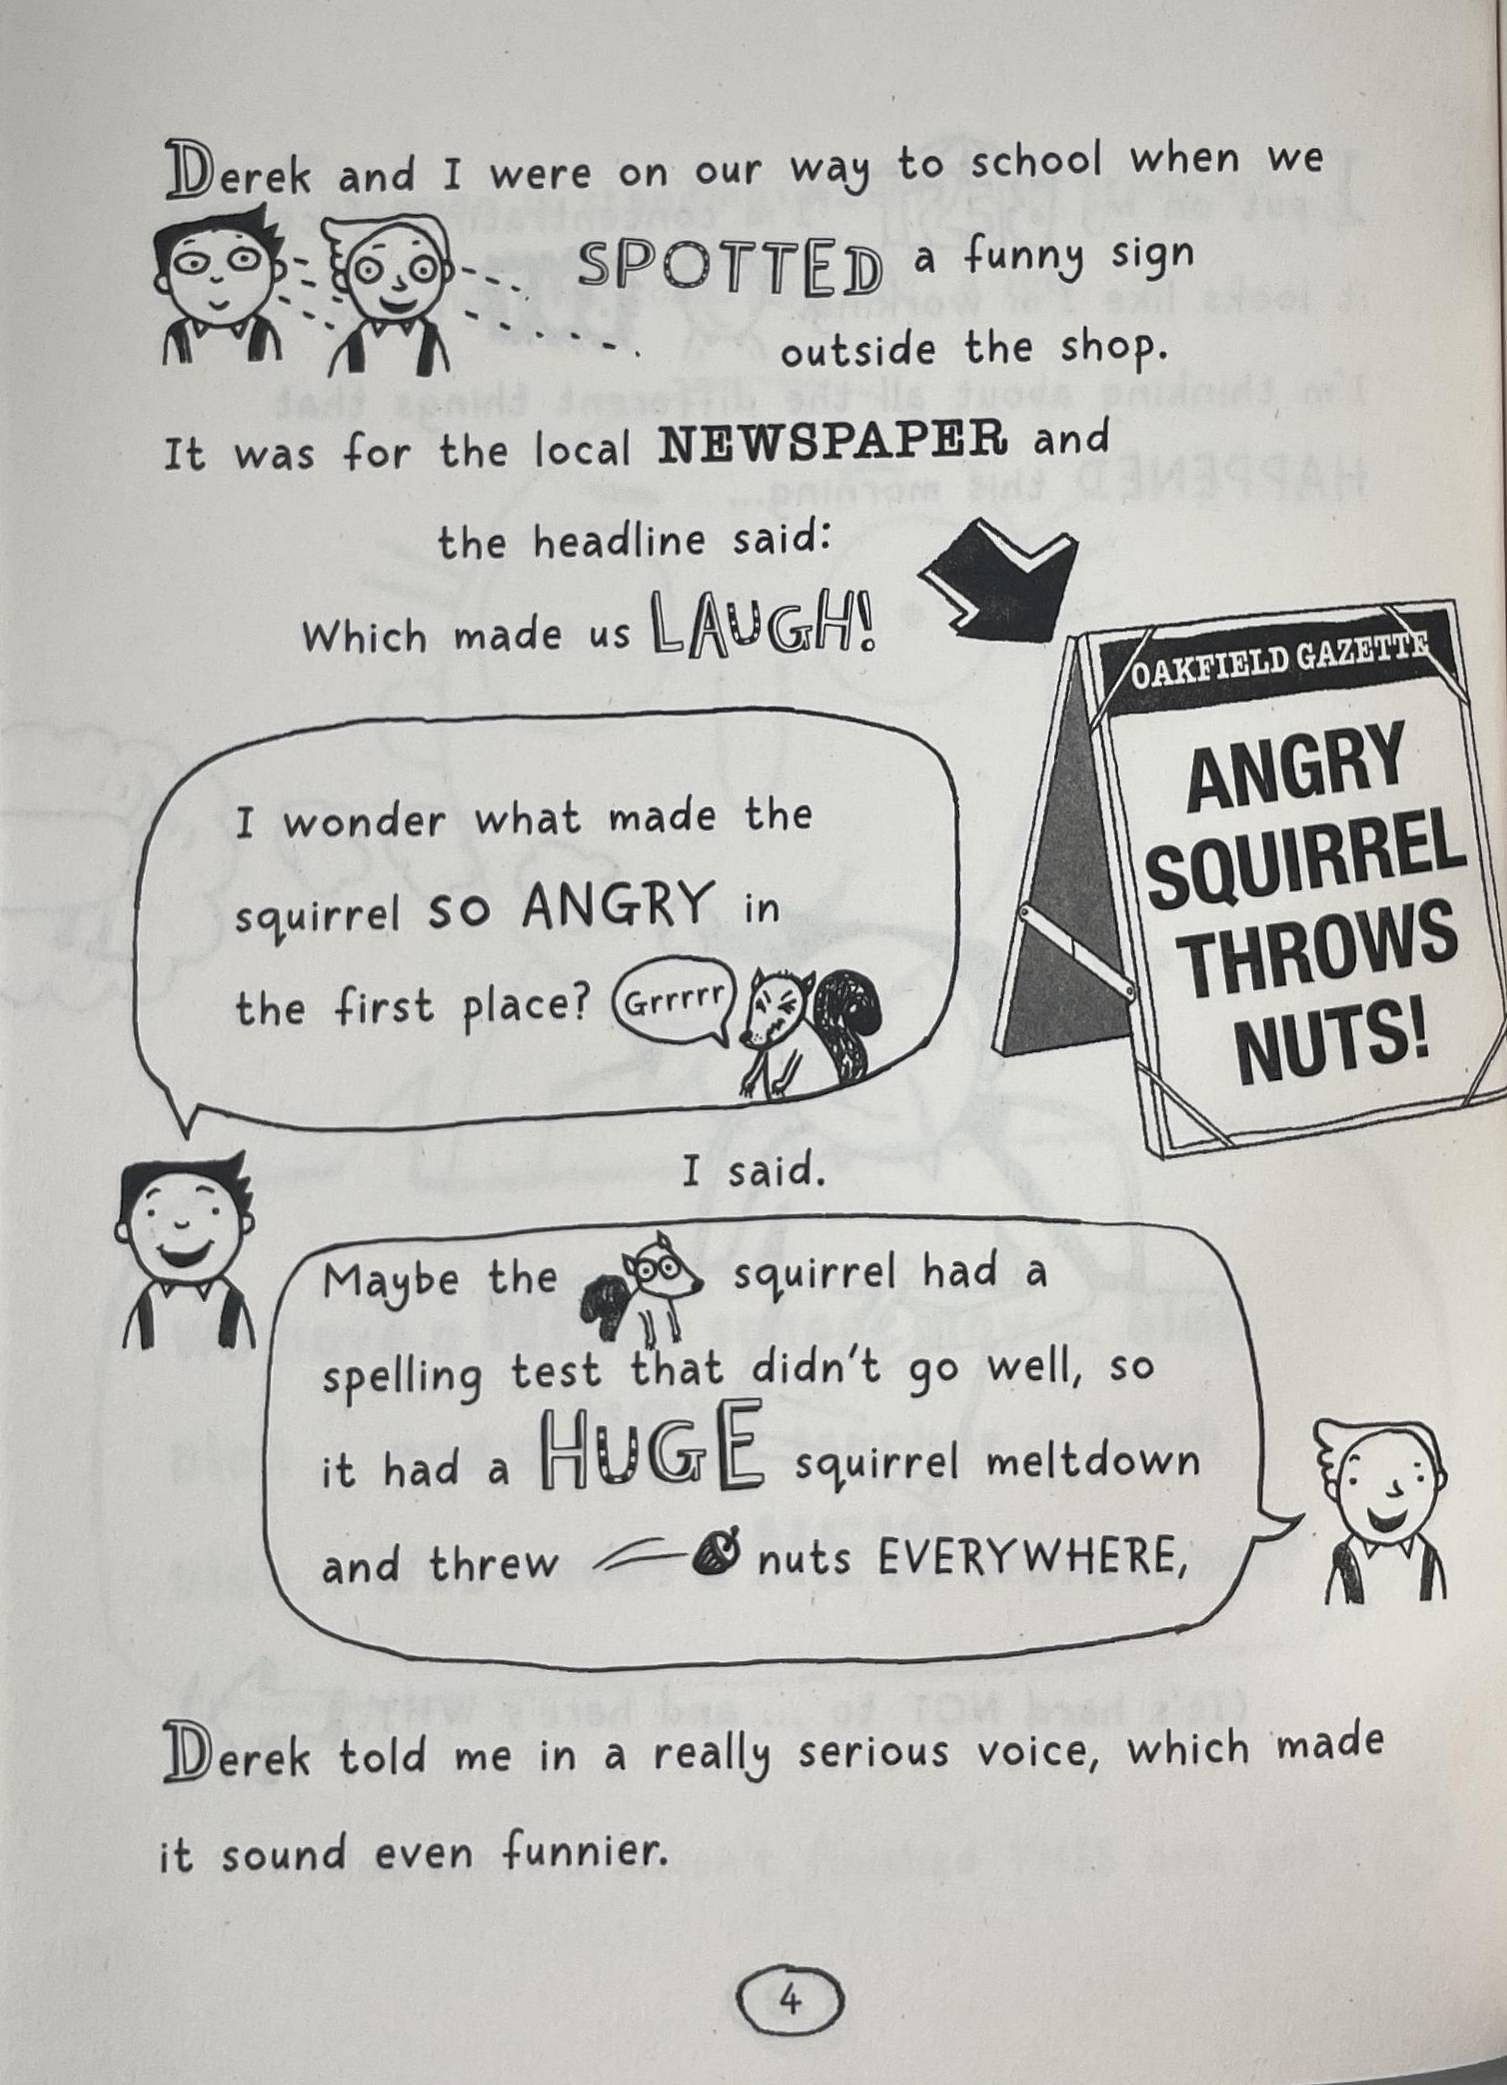 Derek and I were on our way to school when we
SPOTTED a funny sign
outside the shop.
It was for the local NEWSPAPER and
the headline said:
Which made us LAUGH!
OAKFIELD GAZETTE
ANGRY
SQUIRREL
THROWS
NUTS!
I wonder what made the
squirrel SO ANGRY in
the first place?
Grrrrr
I said.
Maybe the squirrel had a
spelling test that didn't go well, so
it had a HUGE squirrel meltdown
and threw nuts EVERYWHERE,
Derek told me in a really serious voice, which made
it sound even funnier.
4